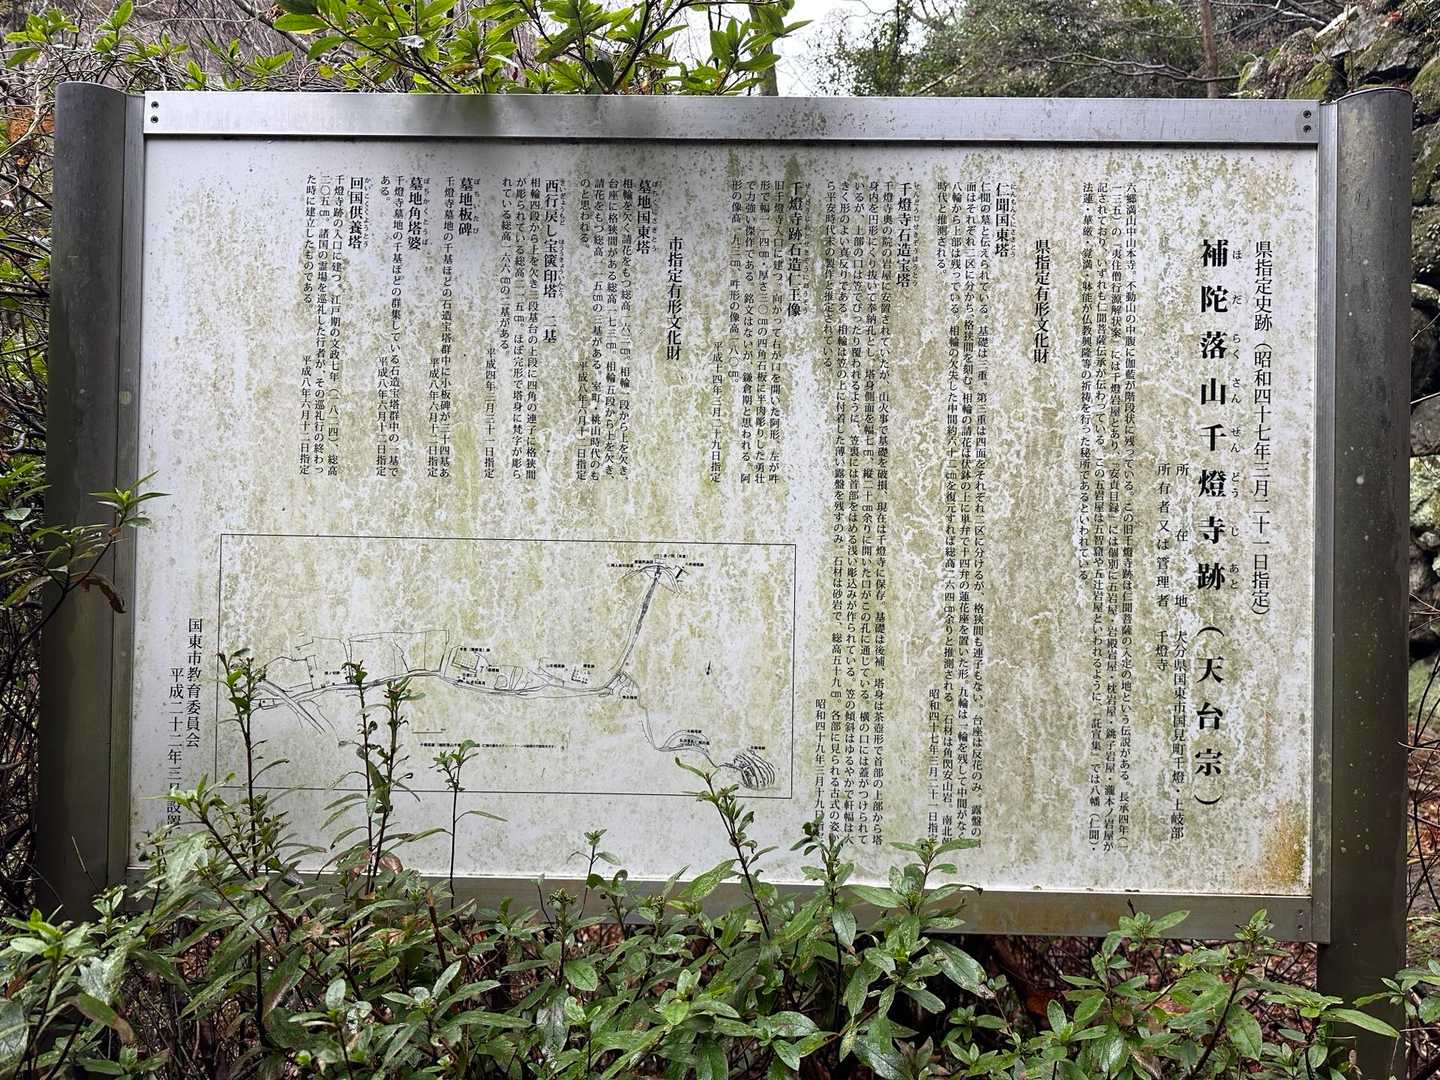 県指定史跡（昭和四十七年三月二十一日指定）
補陀落山千燈寺跡（天台宗）
ほだらくさんせんどうじあと
所在地　大分県国東市国見町千燈・上岐部
所有者又は管理者　千燈寺
六郷満山中山本寺。不動山の中腹に伽藍が階段状に残っている。この旧千燈寺跡は仁聞菩薩の入定の地という伝説がある。長承四年（一
一三五）の「夷住僧行源解状案」には千燈岩屋とあり、「安貞目録」には個別に五岩屋・岩殿岩屋・枕岩屋・銚子岩屋・瀧本ノ岩屋が
記されており、いずれも仁聞菩薩伝承が伝わっている。この五岩屋は五智窟や五辻岩屋といわれるように、「託宣集」では八幡（仁聞）・
法蓮・華厳・覚満・躰能が仏教興隆等の祈祷を行った秘所であるといわれている。
県指定有形文化財
仁聞国東塔
仁聞の墓と伝えられている。基礎は二重。第二重は四面をそれぞれ二区に分けるが、格狭間も連子もない。台座は反花のみ、露盤の
面はそれぞれ二区に分かち、格狭間を刻む。相輪の請花は伏鉢の上に単弁で十四弁の蓮花座を置いた形。九輪は一輪を残して中間がなく
八輪から上部は残っている。相輪の欠失した中間約六十二㎝を復元すれば総高二六四㎝余りと推測される。石材は角閃安山岩。南北朝
時代と推測される。
昭和四十七年三月二十一日指定
千燈寺石造宝塔
千燈寺奥の院の岩屋に安置されていたが、山火事で基礎を破損、現在は千燈寺に保存。基礎は後補。塔身は茶壺形で首部の上部から塔
身内を円形にくり抜いて奉納孔とし、塔身側面を幅七㎝、縦二十㎝余りに開いた口がこの孔に通じている。横の口には蓋がつけられて
いるが、上部の口は笠でぴったり覆われるように、笠裏には首部をはめる浅い彫込みが作られている。笠の傾斜はゆるやかで軒幅は大
きく形のよい真反りである。相輪は笠の上に付着した薄い露盤を残すのみ。石材は砂岩で、総高五十九㎝。各部に見られる古式の姿か
ら平安時代末の製作と推定されている。
昭和四十九年三月十九日指定
千燈寺跡石造仁王像
旧千燈寺寺入口に建つ。向かって右が口を開いた阿形、左が吽
形で幅一一四㎝・厚さ三〇㎝の四角石板に半肉彫りした勇壮
で力強い傑作である。銘文はないが、鎌倉期と思われる。阿
形の像高一九二㎝、吽形の像高一八〇㎝。
平成十四年三月二十九日指定
市指定有形文化財
墓地国東塔
相輪を欠く請花をもつ総高一六二㎝、相輪一段から上を欠き、
台座に格狭間がある総高一七三㎝、相輪五段から上を欠き、
請花をもつ総高一五㎝の三基がある。室町・桃山時代のも
のと思われる。
平成八年六月十二日指定
西行戻し宝篋印塔　二基
相輪四段から上を欠き二段基台の上段に四角の連子に格狭間
が彫られている総高二一五㎝、ほぼ完形で塔身に梵字が彫ら
れている総高一六六㎝の二基がある。
平成四年三月三十一日指定
墓地板碑
千燈寺墓地の千基ほどの石造宝塔群中に小板碑が三十四基あ
平成八年六月十二日指定
墓地角塔婆
千燈寺墓地の千基ほどの群集している石造宝塔群中の一基で
ある。
平成八年六月十二日指定
回国供養塔
かいこくくようとう
千燈寺跡の入口に建つ。江戸期の文政七年（一八二四）、総高
三〇五㎝。諸国の霊場を巡礼した行者が、その巡礼行の終わっ
た時に建立したものである。
平成八年六月十二日指定
国東市教育委員会
平成二十二年三月設置